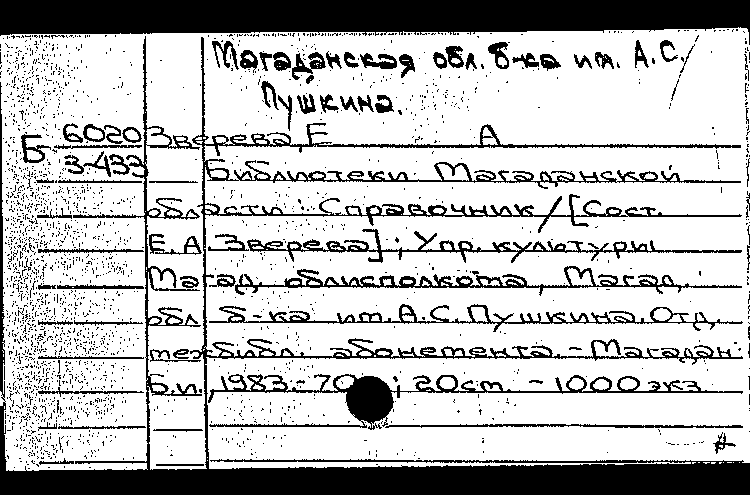 Магаданская обл. б-ка им. А.С.
Пушкина.
Б 6020 Зверева, Е А
3-433 Библиотеки Магаданской
области : Справочник / [Сост.
Е. А. Зверева] ; Упр. культуры
Магад. облисполкома, Магад.
обл б-ка им. А.С. Пушкина. Отд.
межбибл. абонемента. - Магадан :
Б.и., 1983. - 70 ; 20 см. - 1000 экз